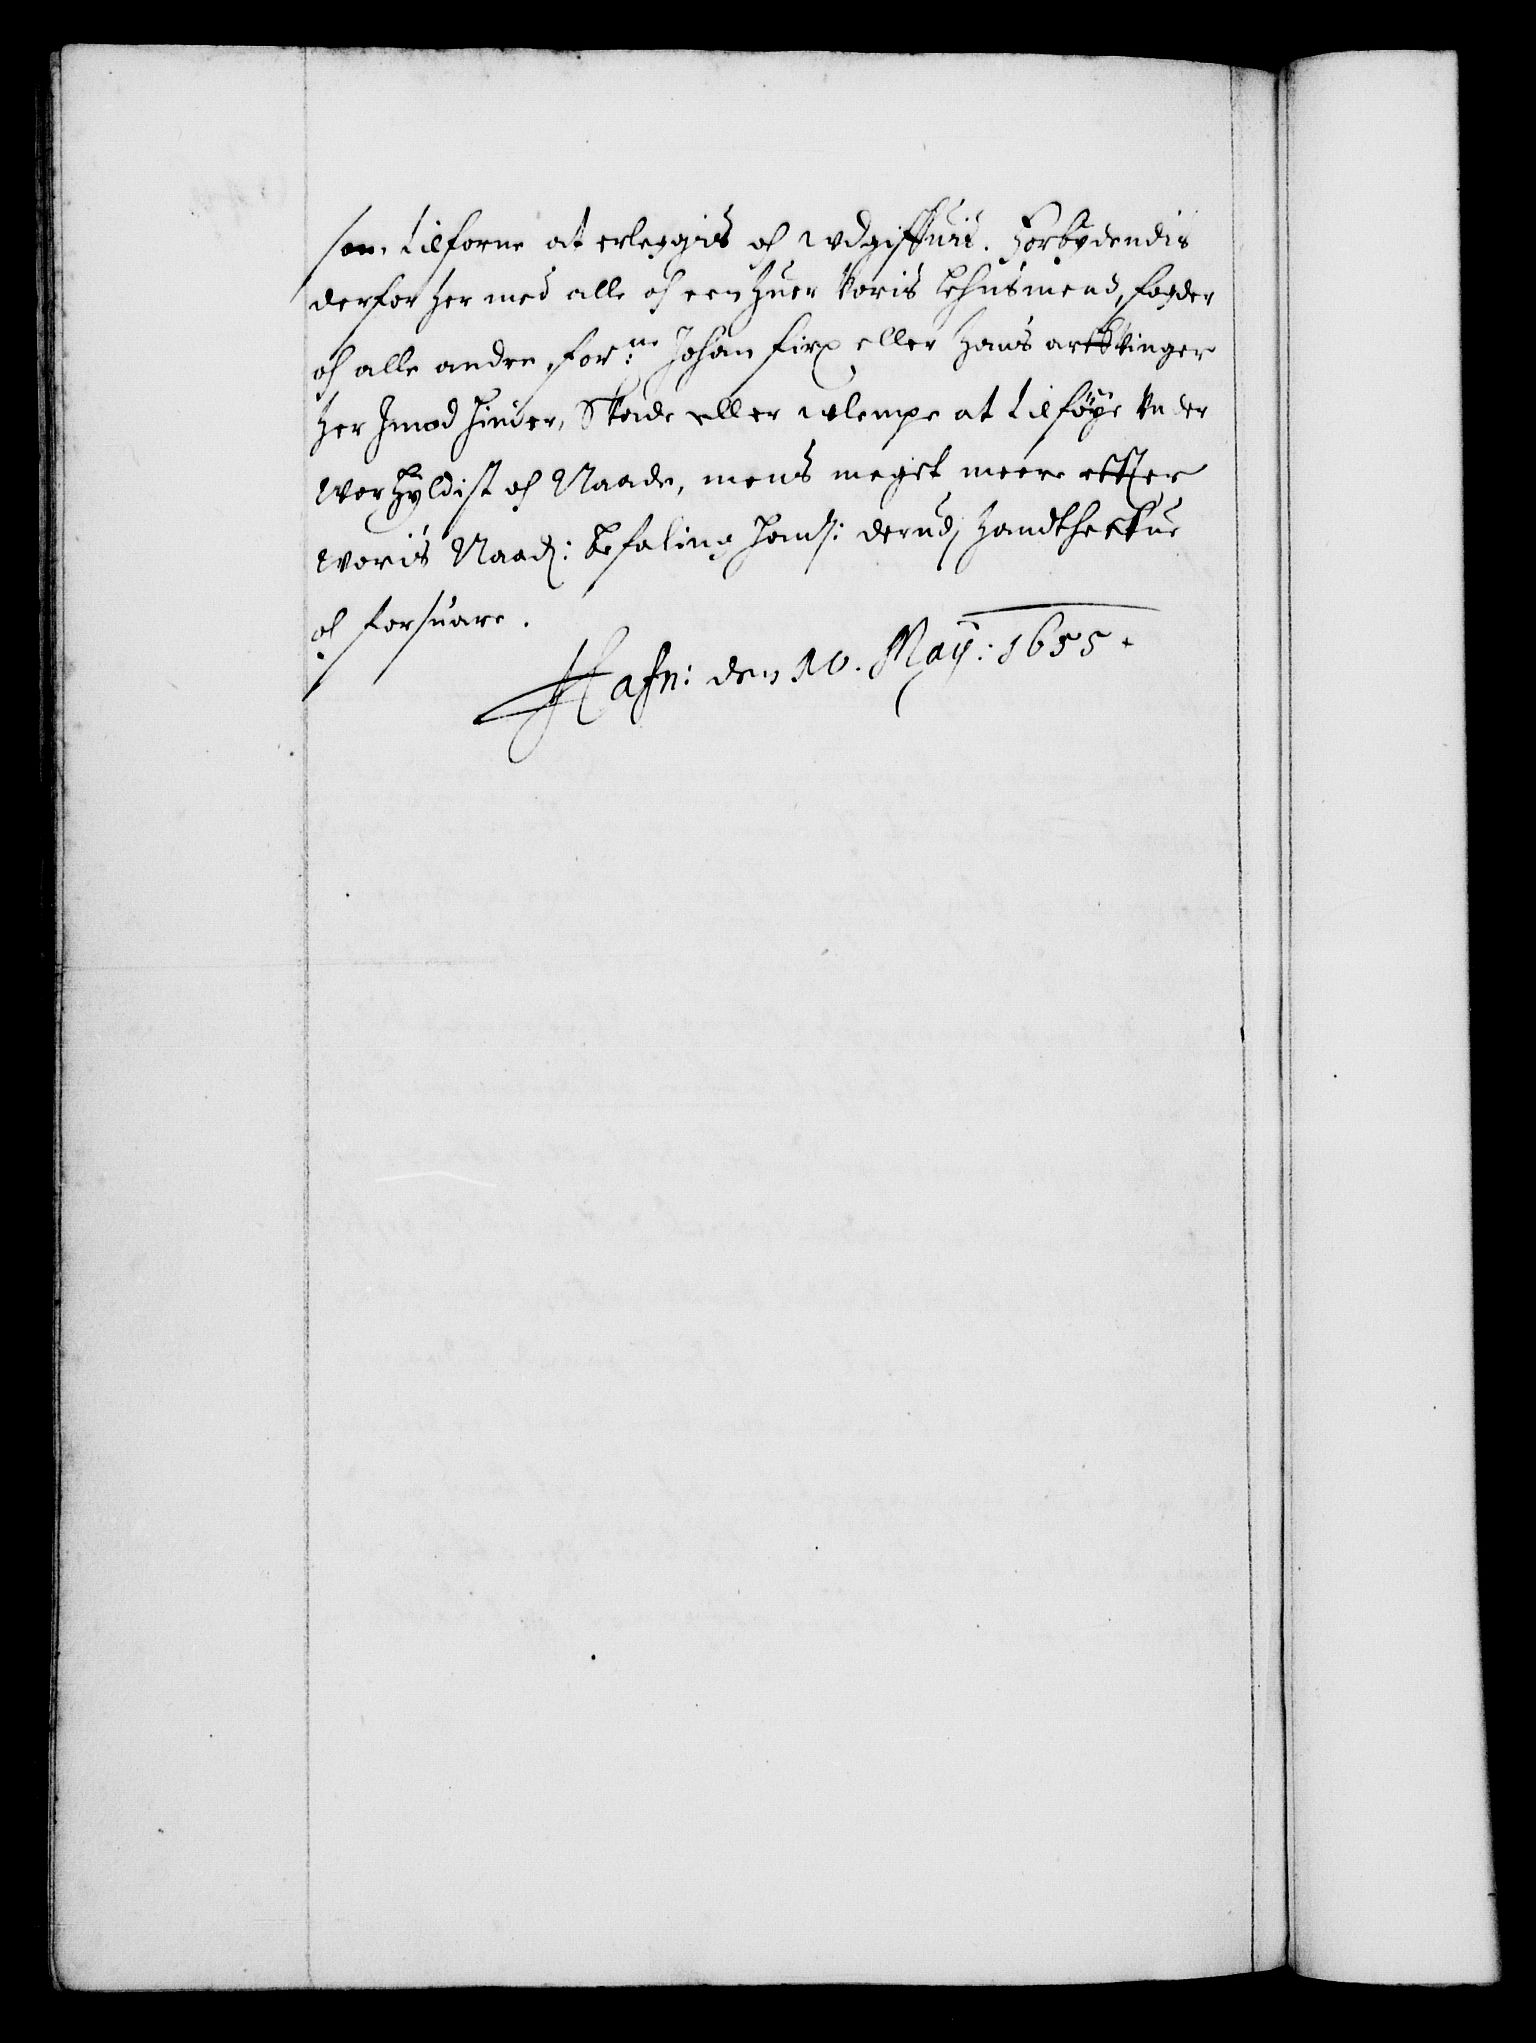 som tilforne at erleggis och wdgiffuis. Forbydendis
derfor her med alle och een huer Voris Lehnsmend, fogder
och alle andre, for:ne Johan firx eller hans arffvinger
her Imod hinder, Skade eller welempe at tilföye Vnder
wor hyldist och Naade, mens meget meere effter
woris Naad: Befaling ham: derudj handtheffue
och forsuare.
Hafn: den 10. Maij: 1655.